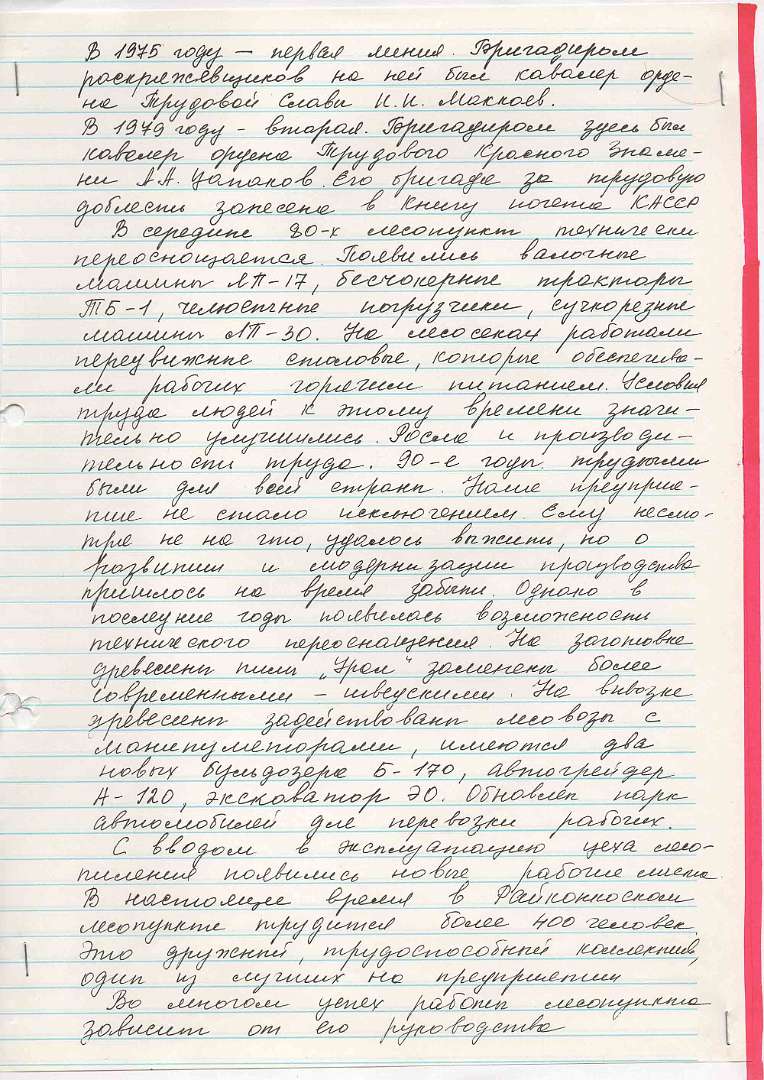 В 1975 году — первая линия. Бригадиром
раскряжёвщиков на ней был кавалер орде-
на Трудовой Славы И.И. Маккоев.
В 1979 году - вторая. Бригадиром здесь был
кавалер ордена Трудового Красного Знаме-
ни А.А. Цапаков. Его бригада за трудовую
доблесть занесена в Книгу почета КАССР
В середине 80-х лесопункт технически
переоснощается. Появились валочные
машины ЛП-17, бесчокерные тракторы
ТБ-1, челюстные погрузчики, сучкорезные
машины ЛП-30. На лесосеках работали
передвижные столовые, которые обеспечива-
ли рабочих горячим питанием. Условия
труда людей к этому времени значи-
тельно улучшились. Росла и производи-
тельность труда. 90-е годы трудными
были для всей страны. Наше предприя-
тие не стало исключением. Ему несмо-
тря не на что, удалось выжить, но о
развитии и модернизации производства
пришлось на время забыть. Однако в
последние годы появилась возможность
технического переоснащения. На заготовке
древесины пилы „Урал" заменены более
современными — шведскими. На вывозке
древесины задействованы лесовозы с
манипуляторами, имеются два
новых бульдозера Б-170, автогрейдер
А-120, экскаватор ЭО. Обновлён парк
автомобилей для перевозки рабочих.
С вводом в эксплуатацию цеха лесо-
пиления появились новые рабочие места.
В настоящее время в Райконкоском
лесопункте трудится более 400 человек.
Это дружный, трудоспособный коллектив,
один из лучших на предприятии
Во многом успех работы лесопункта
зависит от его руководства